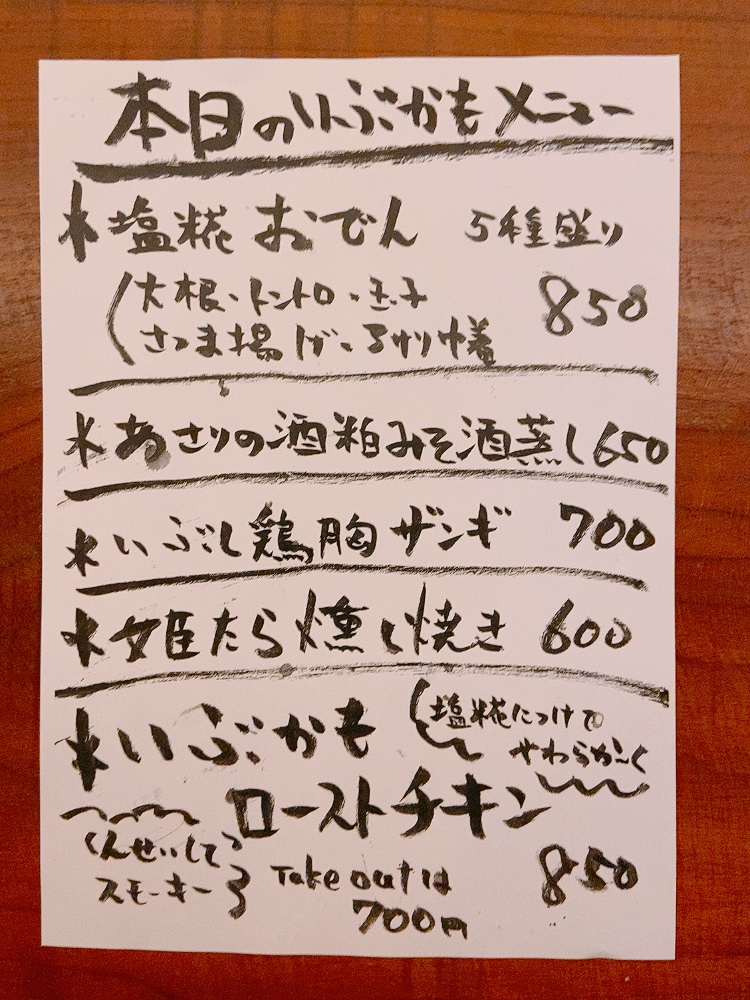 本日のいぶかもメニュー
塩糀おでん 5種盛り
(大根・トントロ・玉子 850
さつま揚げ・ろサリ巾着
あさりの酒粕みそ酒蒸し 650
いぶし鶏胸ザンギ 700
姫たら燻し焼き 600
いぶかも (塩糀につけて
やわらか〜く
ローストチキン
くんせいして
スモーキー Take outは 850
700円